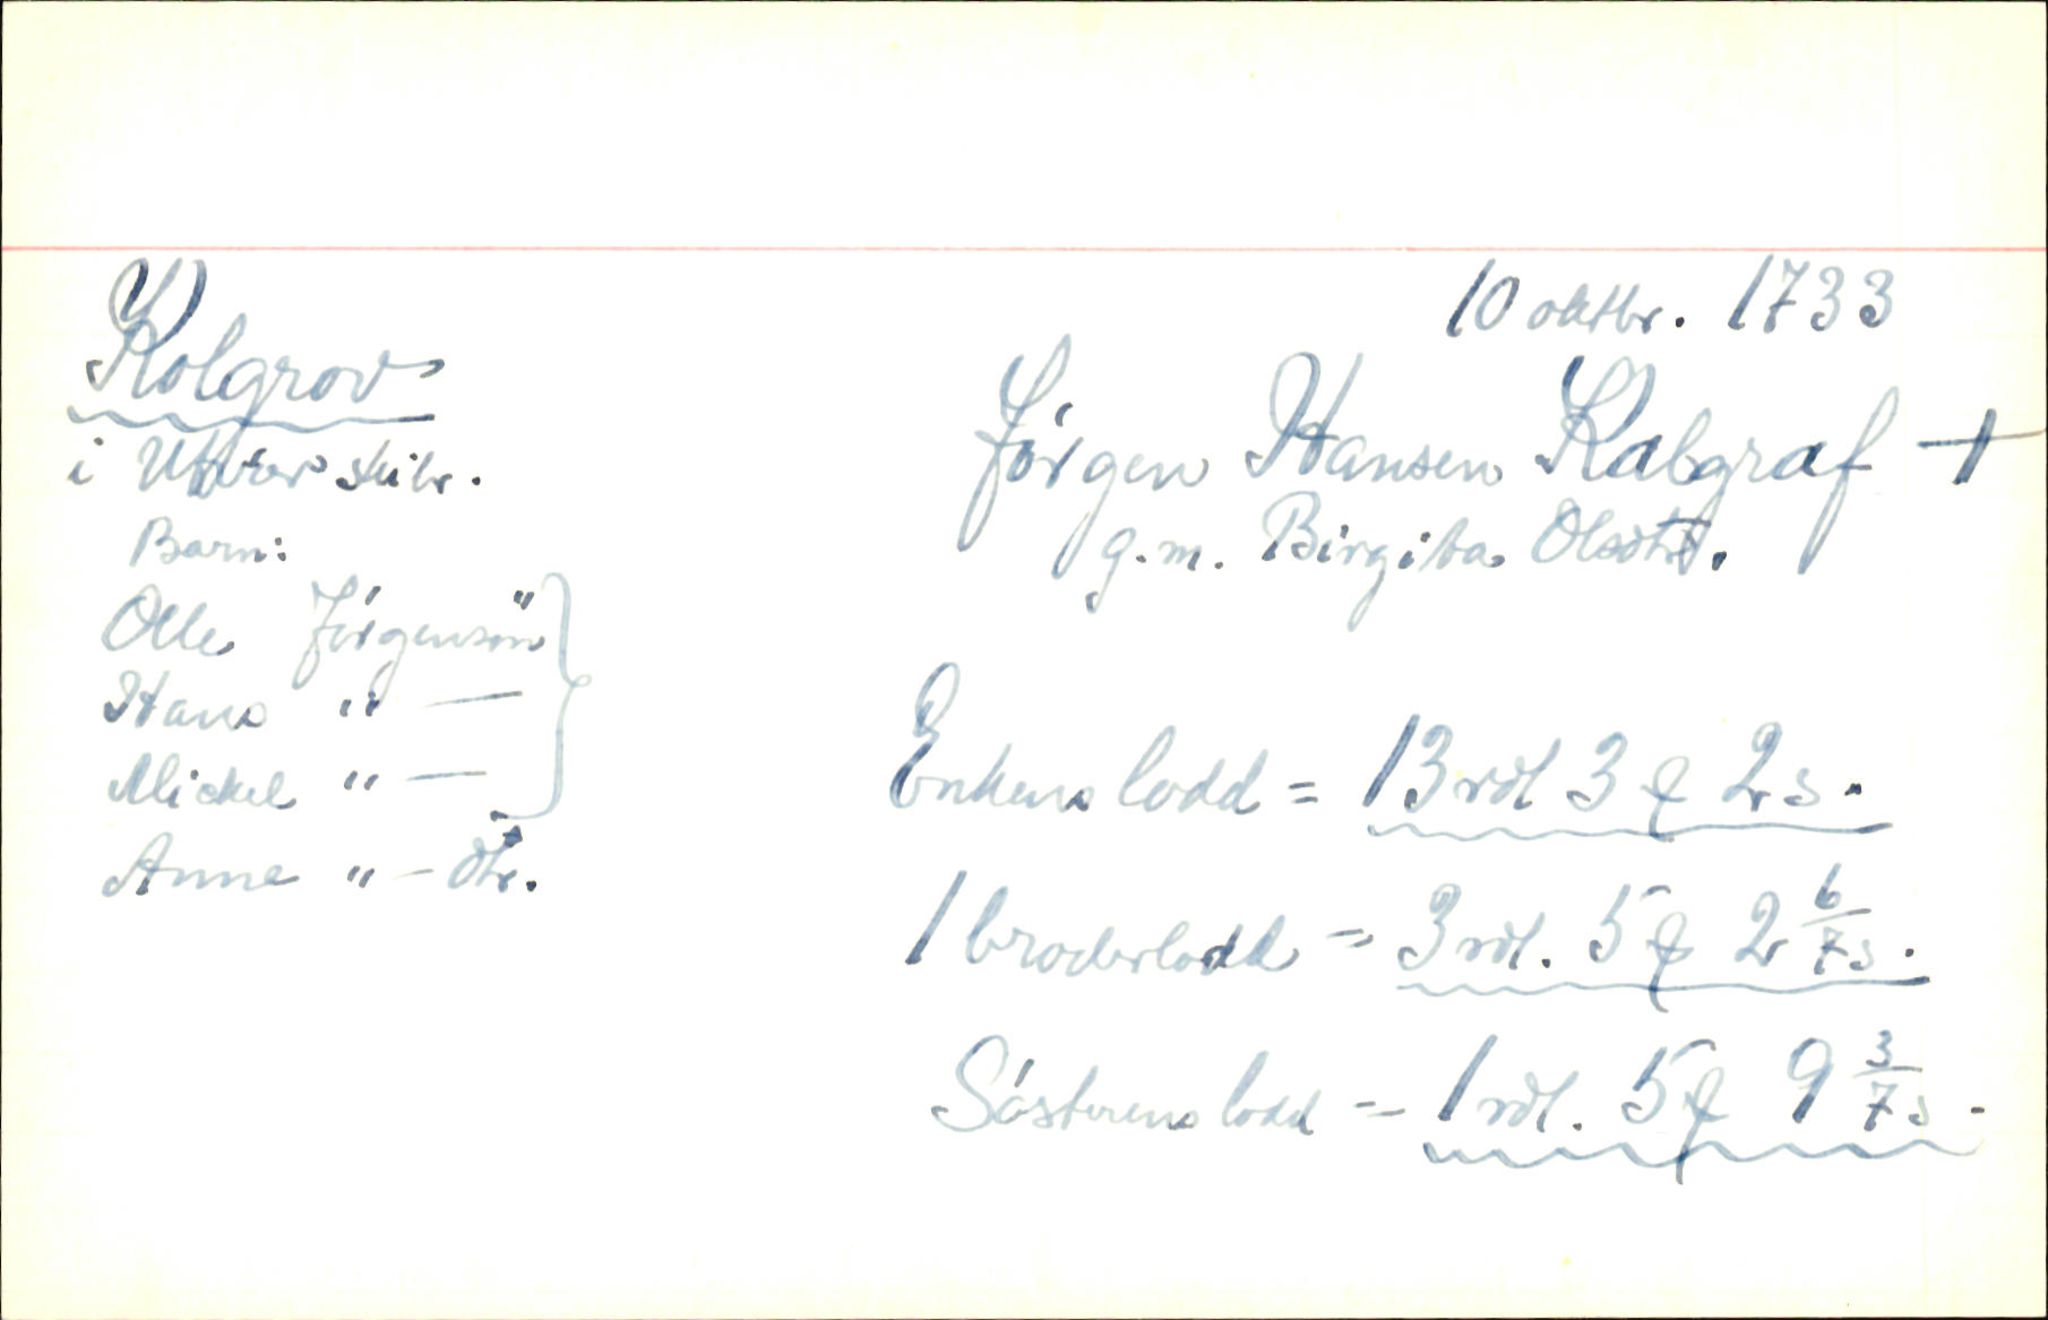 10 oktbr. 1733
Kolgrov
i Uttvær skibr.
Jörgen Hansen Kalgraf +
g.m. Birgita Olsdtr.
Barn:
Olle Jörgensön
Hans " —
Mickel " —
Anne " – dtr.
Enkens lodd = 13 rdl 3 ₰ 2 s.
1 broderlodd = 3 rdl. 5 ₰ 2 6/7 s.
Sösterens lodd = 1 rdl. 5 ₰ 9 3/7 s.